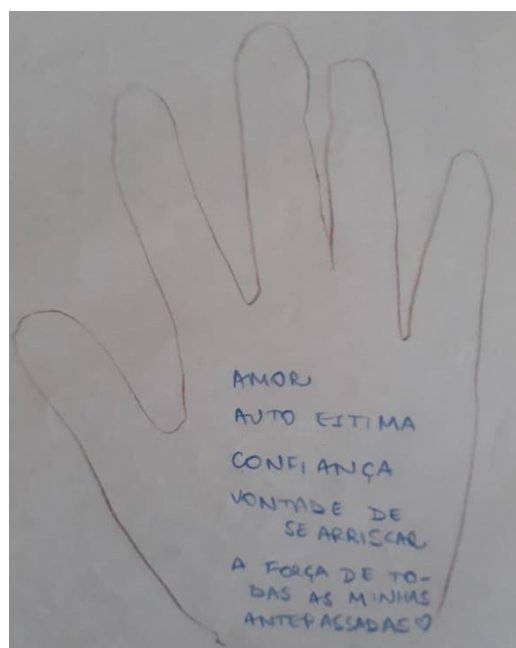 AMOR
AUTO ESTIMA
CONFIANÇA
VONTADE DE
SE ARRISCAR
A FORÇA DE TO-
DAS AS MINHAS
ANTEPASSADAS♡